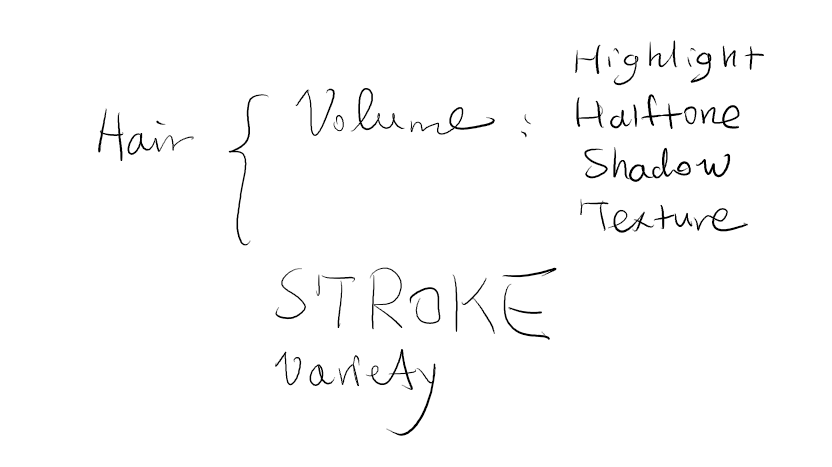 Hair { Volume :
Highlight
Halftone
Shadow
Texture
STROKE
Variety